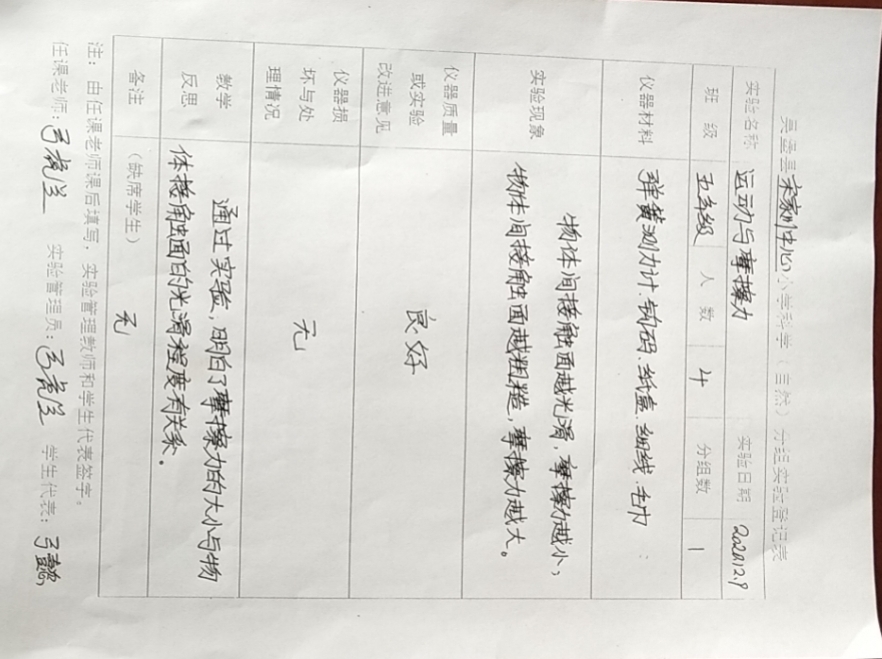 吴堡县宋家川中心小学科学（自然）分组实验登记表
实验名称 运动与摩擦力 实验日期
班 级 五年级 人 数 4 分组数 1
仪器材料 弹簧测力计.钩码.纸盒.细线.毛巾
实验现象
物体间接触面越光滑，摩擦力越小，
物体间接触面越粗糙，摩擦力越大。
仪器质量
或实验
改进意见
良好
仪器损
坏与处
理情况
无
教学
反思
通过实验，明白了摩擦力的大小与物
体接触面的光滑程度有关系。
备注 （缺席学生） 无
注：由任课老师课后填写，实验管理教师和学生代表签字。
任课老师： 实验管理员： 学生代表：